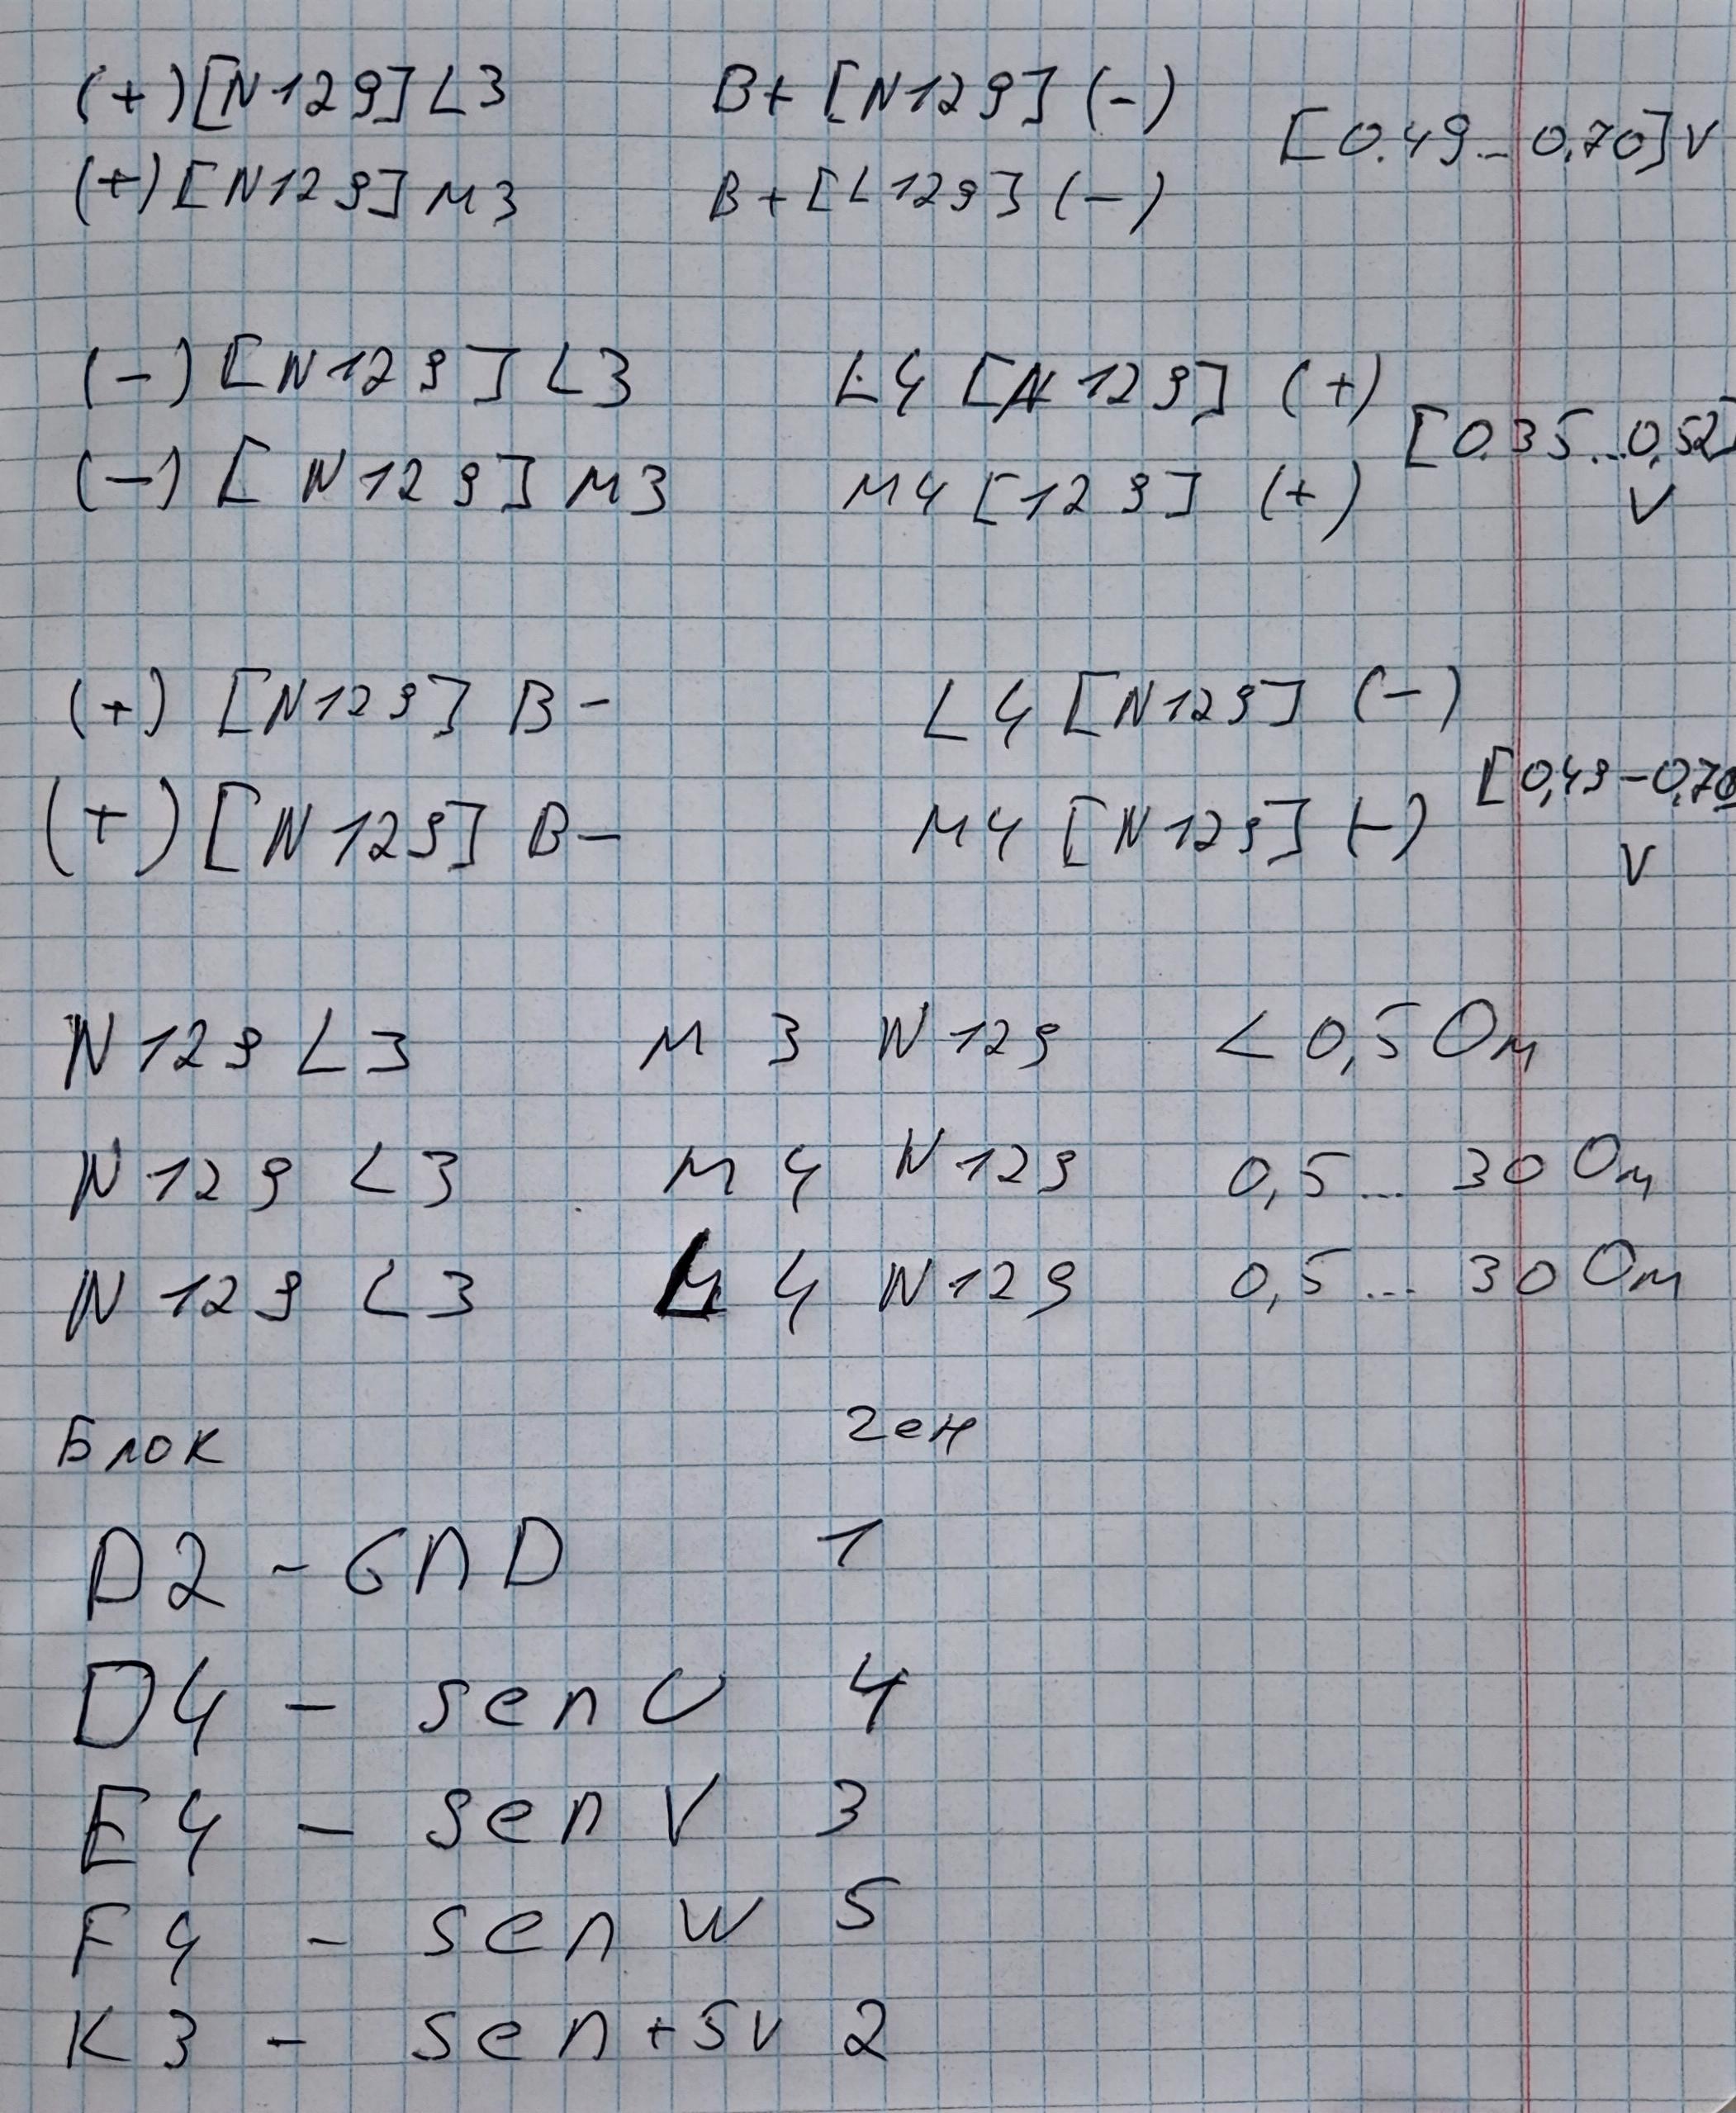 (+)[N129] L3 B+ [N129] (-) [0.49...0,70]V
(+)[N129] M3 B+[L129] (-)
(-) [N129] L3 L4 [N129] (+) [0.35...0,52]
(-) [N129] M3 M4 [129] (+) V
(+) [N129] B- L4 [N129] (-)
(+) [N129] B- M4 [N129] (-) [0,49-0,70
V
N129 L3 M3 N129 < 0,5 Ом
N129 L3 M4 N129 0,5... 30 Ом
N129 L3 L4 N129 0,5... 30 Ом
Блок ген
D2 - GND 1
D4 - sen U 4
E4 - sen V 3
F4 - sen W 5
K3 - sen +5V 2